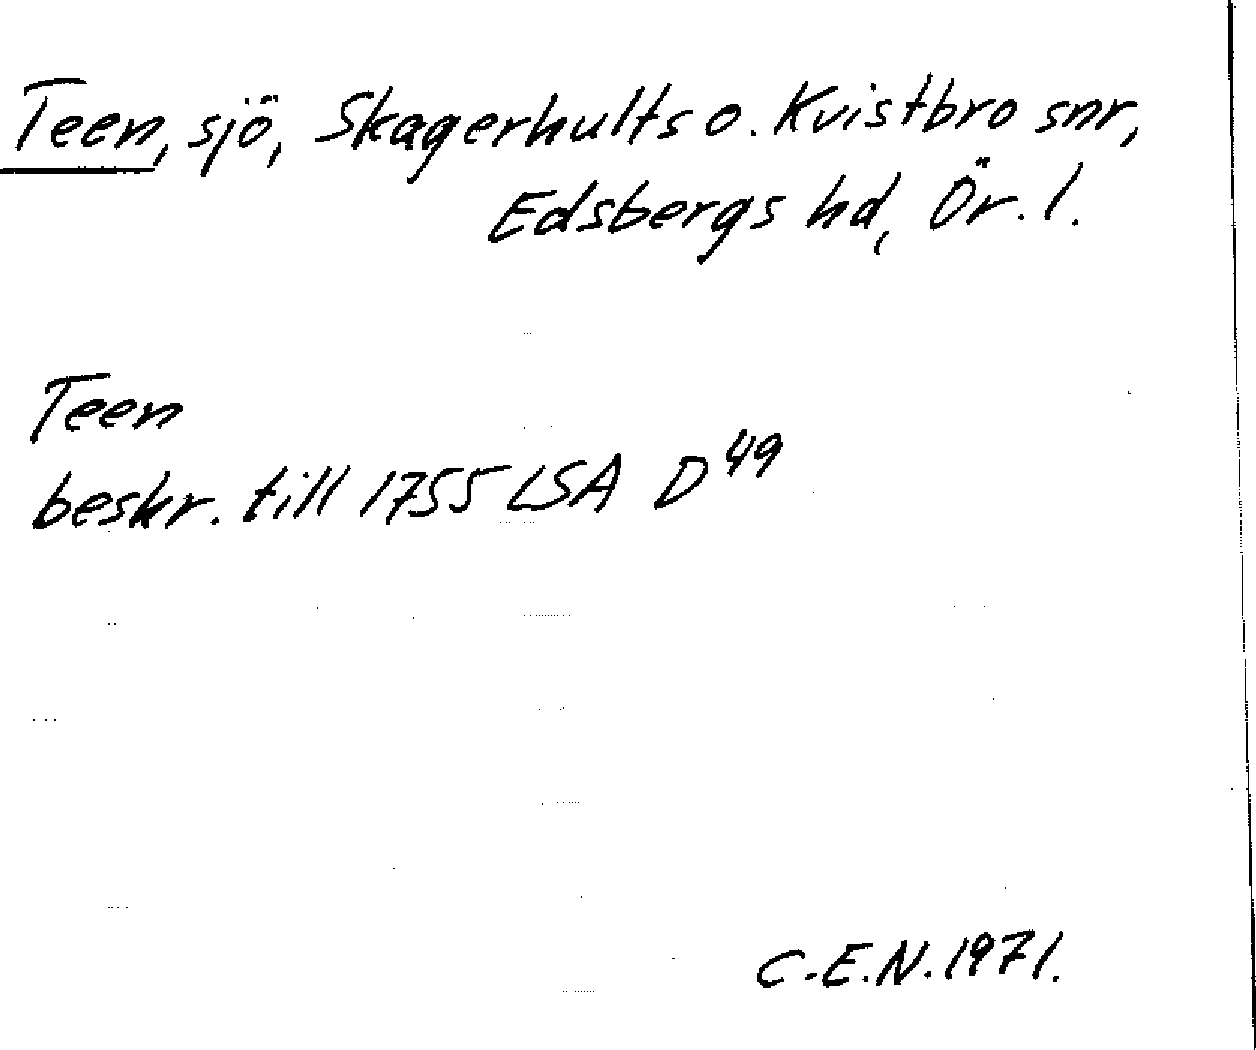 Teen, sjö, Skagerhults o. Kvistbro snr,
Edsbergs hd, Ör. l.
Teen
beskr. till 1755 LSA D 49
C.E.N. 1971.